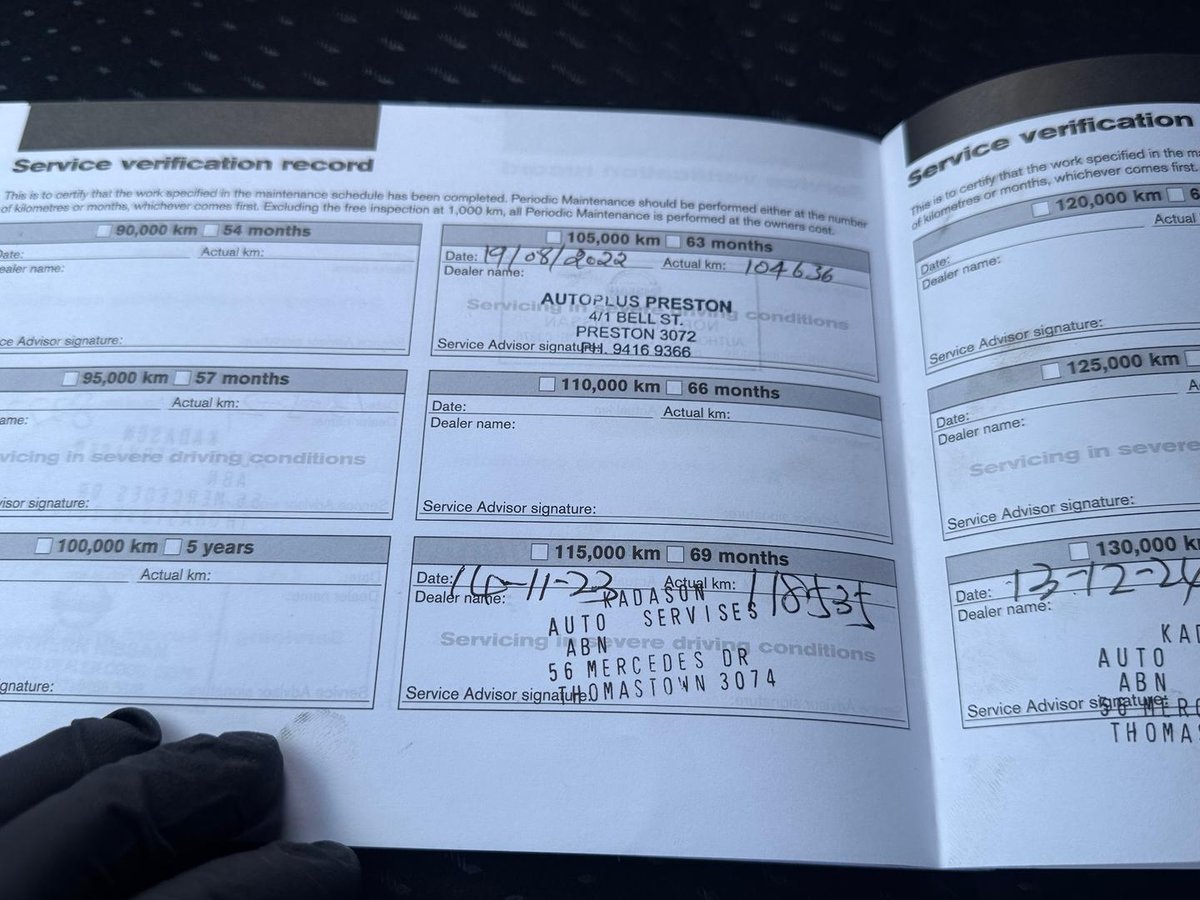 Service verification record
This is to certify that the work specified in the maintenance schedule has been completed. Periodic Maintenance should be performed either at the number
of kilometres or months, whichever comes first. Excluding the free inspection at 1,000 km, all Periodic Maintenance is performed at the owners cost.
90,000 km 54 months
Date: Actual km:
ealer name:
ce Advisor signature:
95,000 km 57 months
Actual km:
ame:
vicing in severe driving conditions
visor signature:
100,000 km 5 years
Actual km:
gnature:
105,000 km 63 months
Date: 19/08/2022 Actual km: 104636
Dealer name:
AUTOPLUS PRESTON
Servicing in severe driving conditions
4/1 BELL ST.
PRESTON 3072
Service Advisor signature:
PH. 9416 9366
110,000 km 66 months
Date: Actual km:
Dealer name:
Service Advisor signature:
115,000 km 69 months
Date: 16-11-23 Actual km: 118535
Dealer name:
KADASON
AUTO SERVISES
ABN
Servicing in severe driving conditions
56 MERCEDES DR
THOMASTOWN 3074
Service Advisor signature:
Service verification
This is to certify that the work specified in the ma
of kilometres or months, whichever comes first.
120,000 km 6
Date: Actual
Dealer name:
Service Advisor signature:
125,000 km
Date: A
Dealer name:
Servicing in severe
Service Advisor signature:
130,000 k
Date: 13-12-24
Dealer name:
KAD
AUTO
ABN
Service Advisor signature:
56 MERC
THOMAS